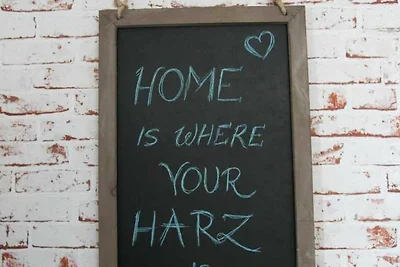 HOME
IS WHERE
YOUR
HARZ